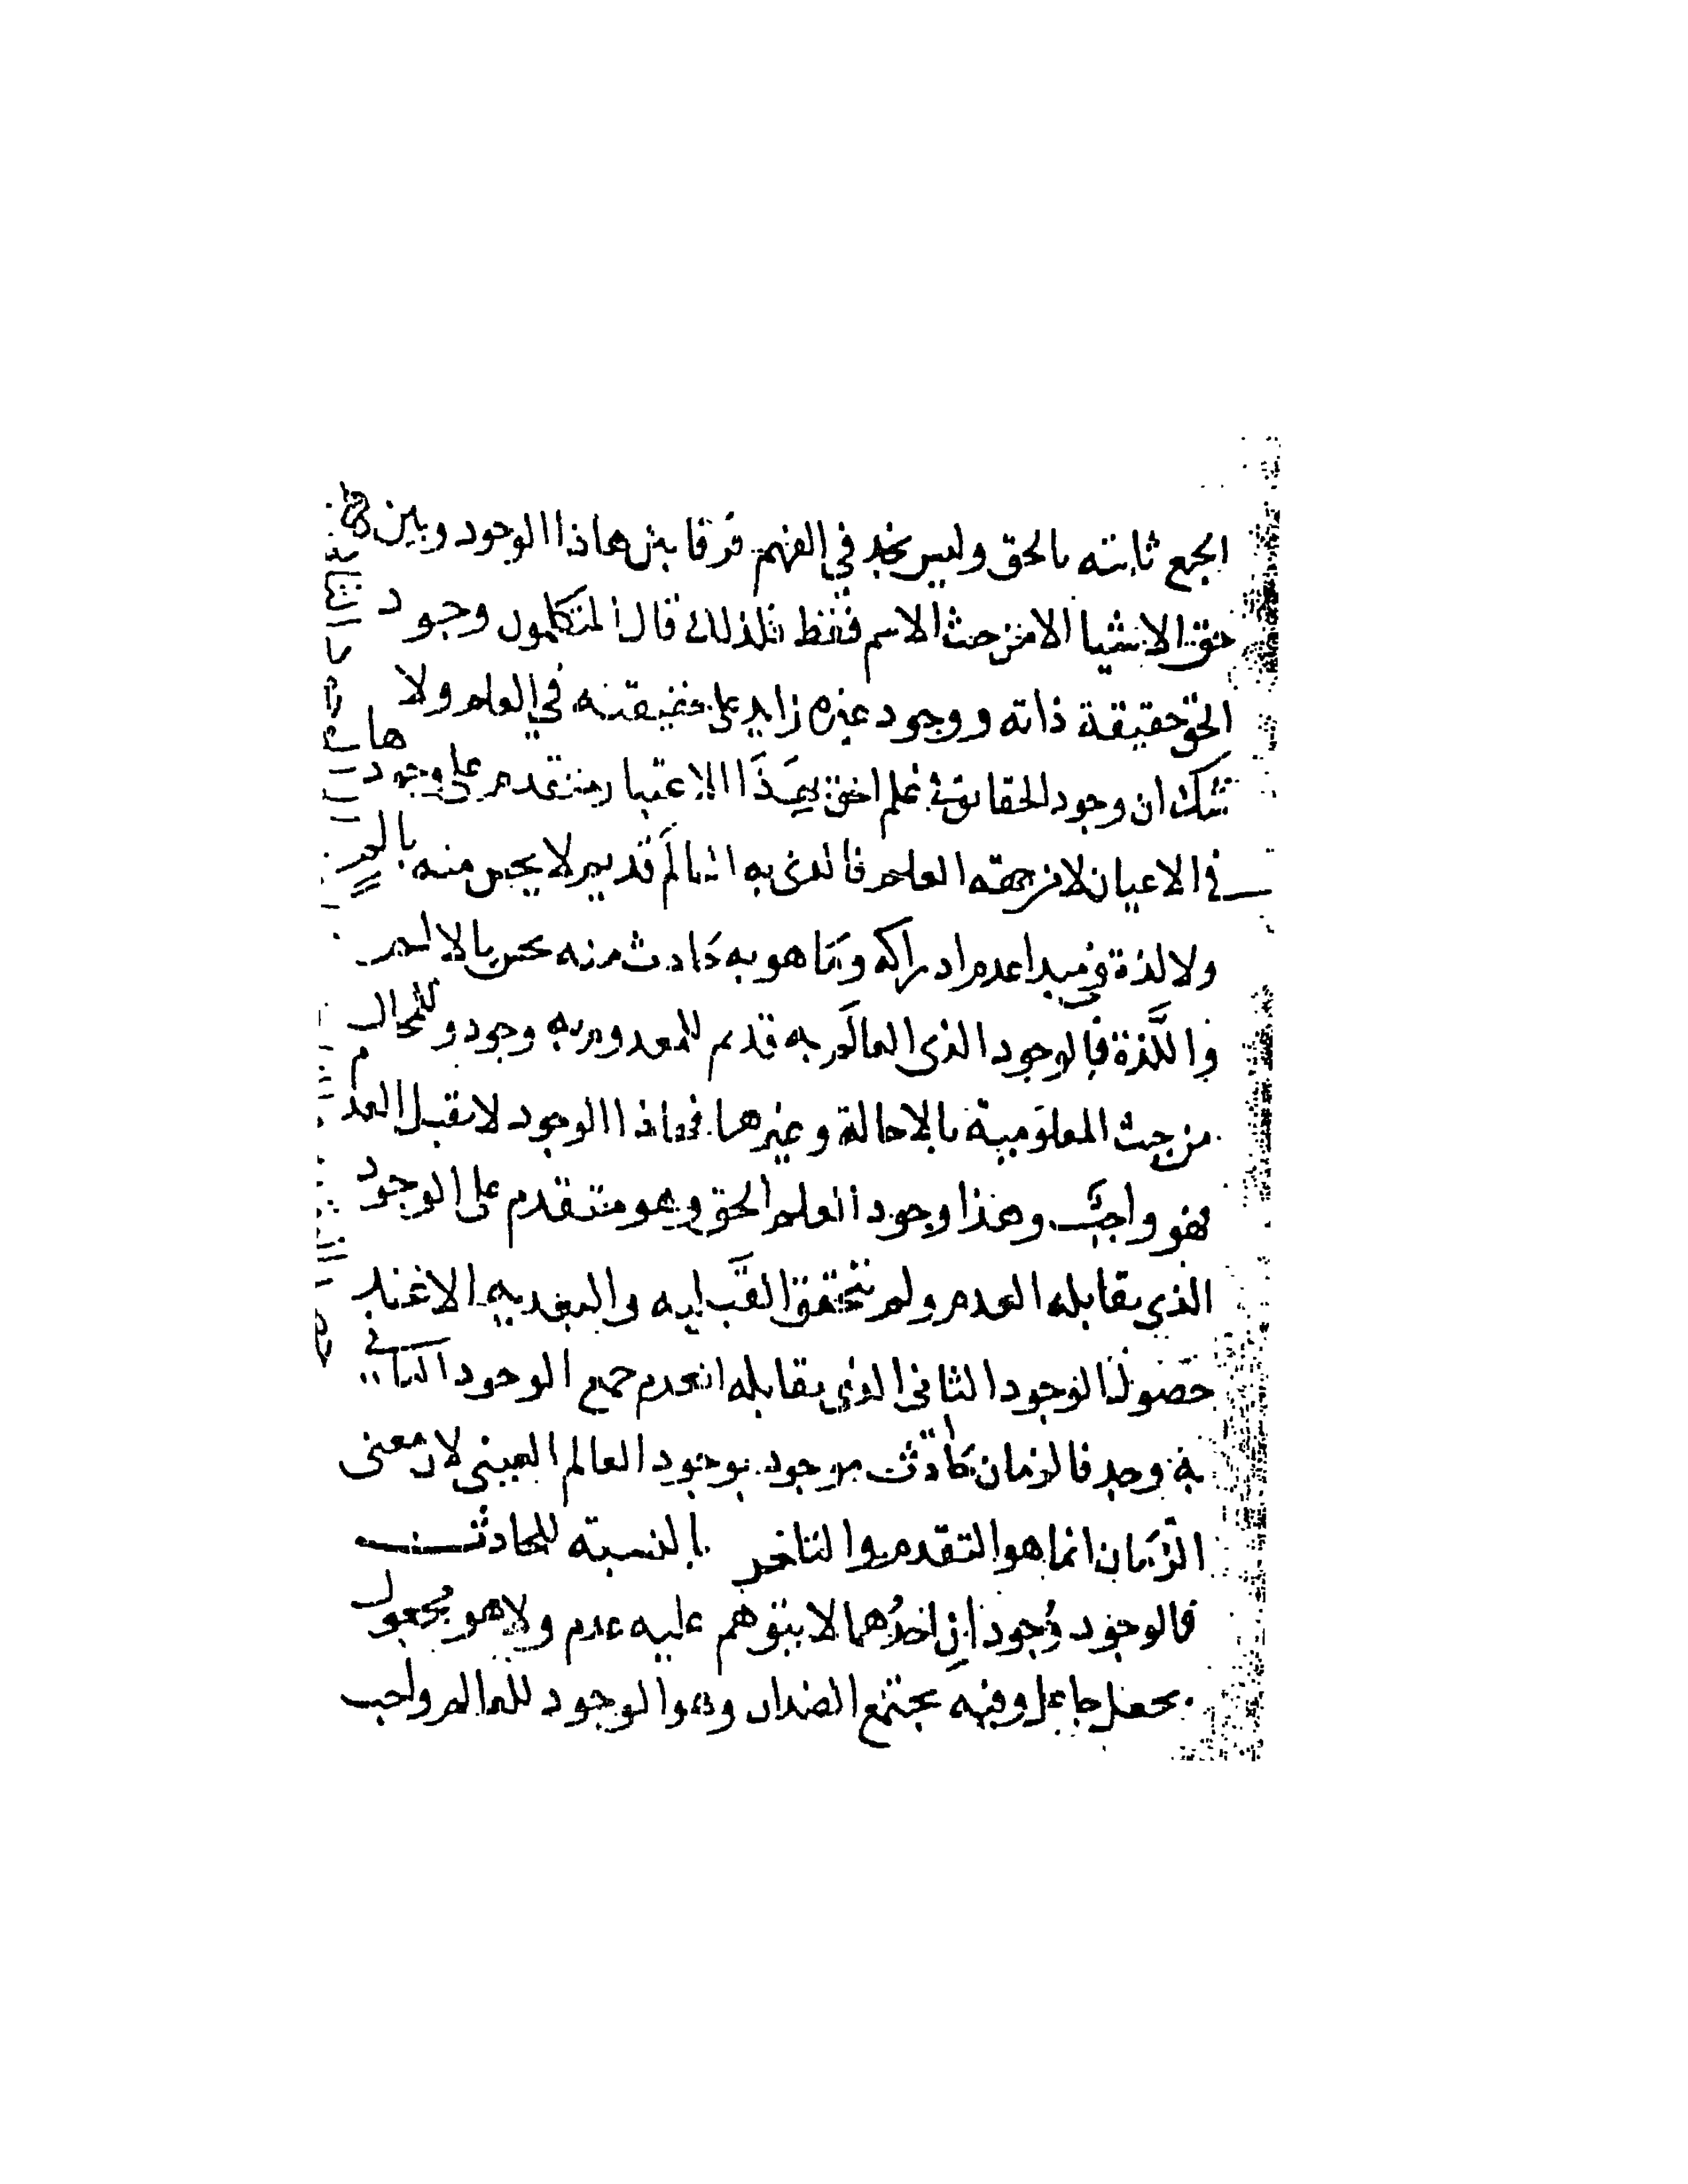 الجمع ثابته بالحق وليس نجد في الفهم فرقا بين هاذا الوجود وبين
حق الاشيا الا من حيث الاسم فقط فلذلك قال المتكلمون وجود
الحق حقيقة ذاته ووجود غيره زايد على حقيقته في العلم ولا
شك ان وجود الحقايق في علم الحق بهذا الاعتبار متقدم على وجودها
في الاعيان لا من جهة العلم فالذي به العالم قديم لا يحس منه بالم
ولا لذة في مبدا عدم ادراكه وما هو به حادث منه يحس بالالم
واللذة فالوجود الذي العالم به قديم للمعدوم به وجود وللمحال
من حيث المعلومية بالاحالة وغيرها فهاذا الوجود لا يقبل العدم
فهو واجب وهذا وجود العلم الحق وهو متقدم على الوجود
الذي يقابله العدم ولم تتحقق القبليه والبعديه الا عند
حصول الوجود الثاني الذي يقابله العدم جمع الوجود الثاني
فالزمان حادث موجود بوجود العالم العيني لان معنى
الزمان انما هو التقدم والتاخر بالنسبة للحادث
فالوجود وجودان احدهما لا يتوهم عليه عدم ولا هو مجعول
بجعل جاعل وفيه يجتمع الضدان وهو الوجود للعالم واجب